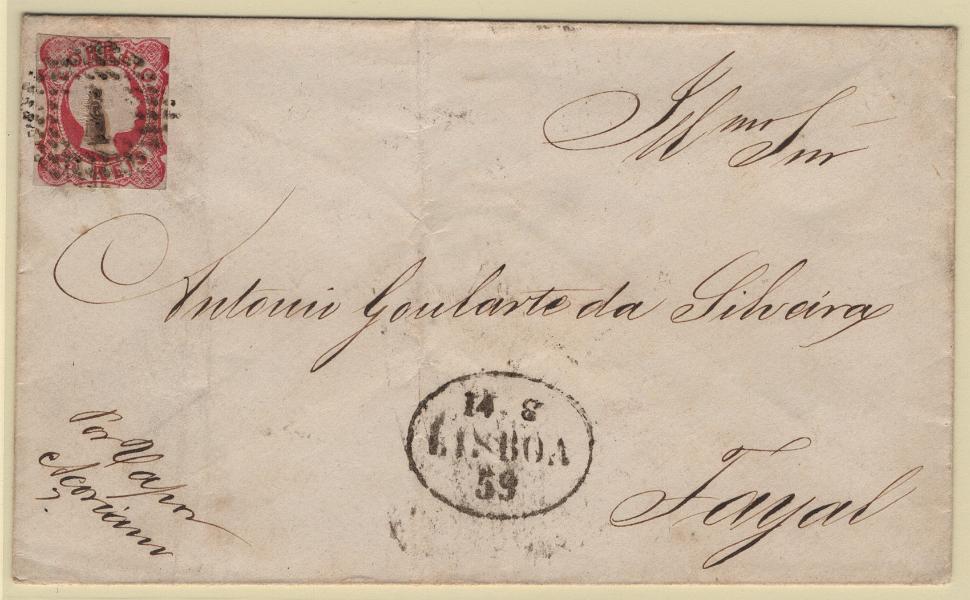 Ill^mo Snr
Antonio Goularte da Silveira
14 8
LISBOA
59
Fayal
Por Vapor
Açoriano